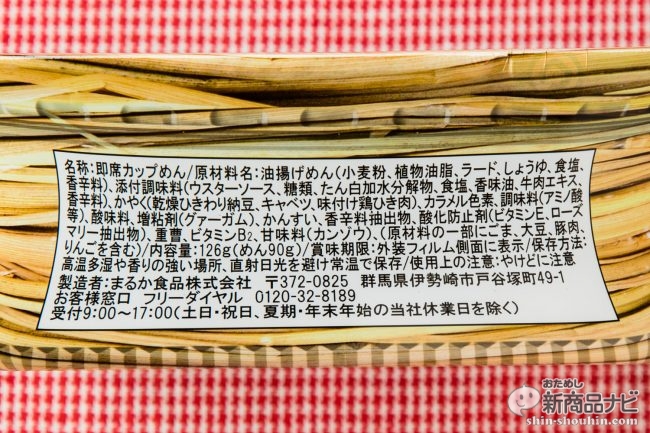 名称:即席カップめん/原材料名:油揚げめん(小麦粉、植物油脂、ラード、しょうゆ、食塩、
香辛料)、添付調味料(ウスターソース、糖類、たん白加水分解物、食塩、香味油、牛肉エキス、
香辛料)、かやく(乾燥ひきわり納豆、キャベツ、味付け鶏ひき肉)、カラメル色素、調味料(アミノ酸
等)、酸味料、増粘剤(グァーガム)、かんすい、香辛料抽出物、酸化防止剤(ビタミンE、ローズ
マリー抽出物)、重曹、ビタミンB₂、甘味料(カンゾウ)、(原材料の一部にごま、大豆、豚肉、
りんごを含む)/内容量:126g(めん90g)/賞味期限:外装フィルム側面に表示/保存方法:
高温多湿や香りの強い場所、直射日光を避け常温で保存/使用上の注意:やけどに注意
製造者:まるか食品株式会社 〒372-0825 群馬県伊勢崎市戸谷塚町49-1
お客様窓口 フリーダイヤル 0120-32-8189
受付9:00~17:00(土日・祝日、夏期・年末年始の当社休業日を除く)
おためし
新商品ナビ
shin-shouhin.com